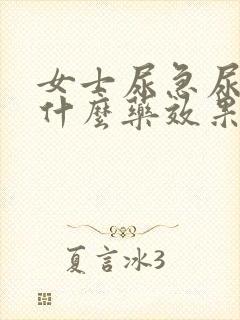 女士尿急尿
什麼藥效果
夏言冰3